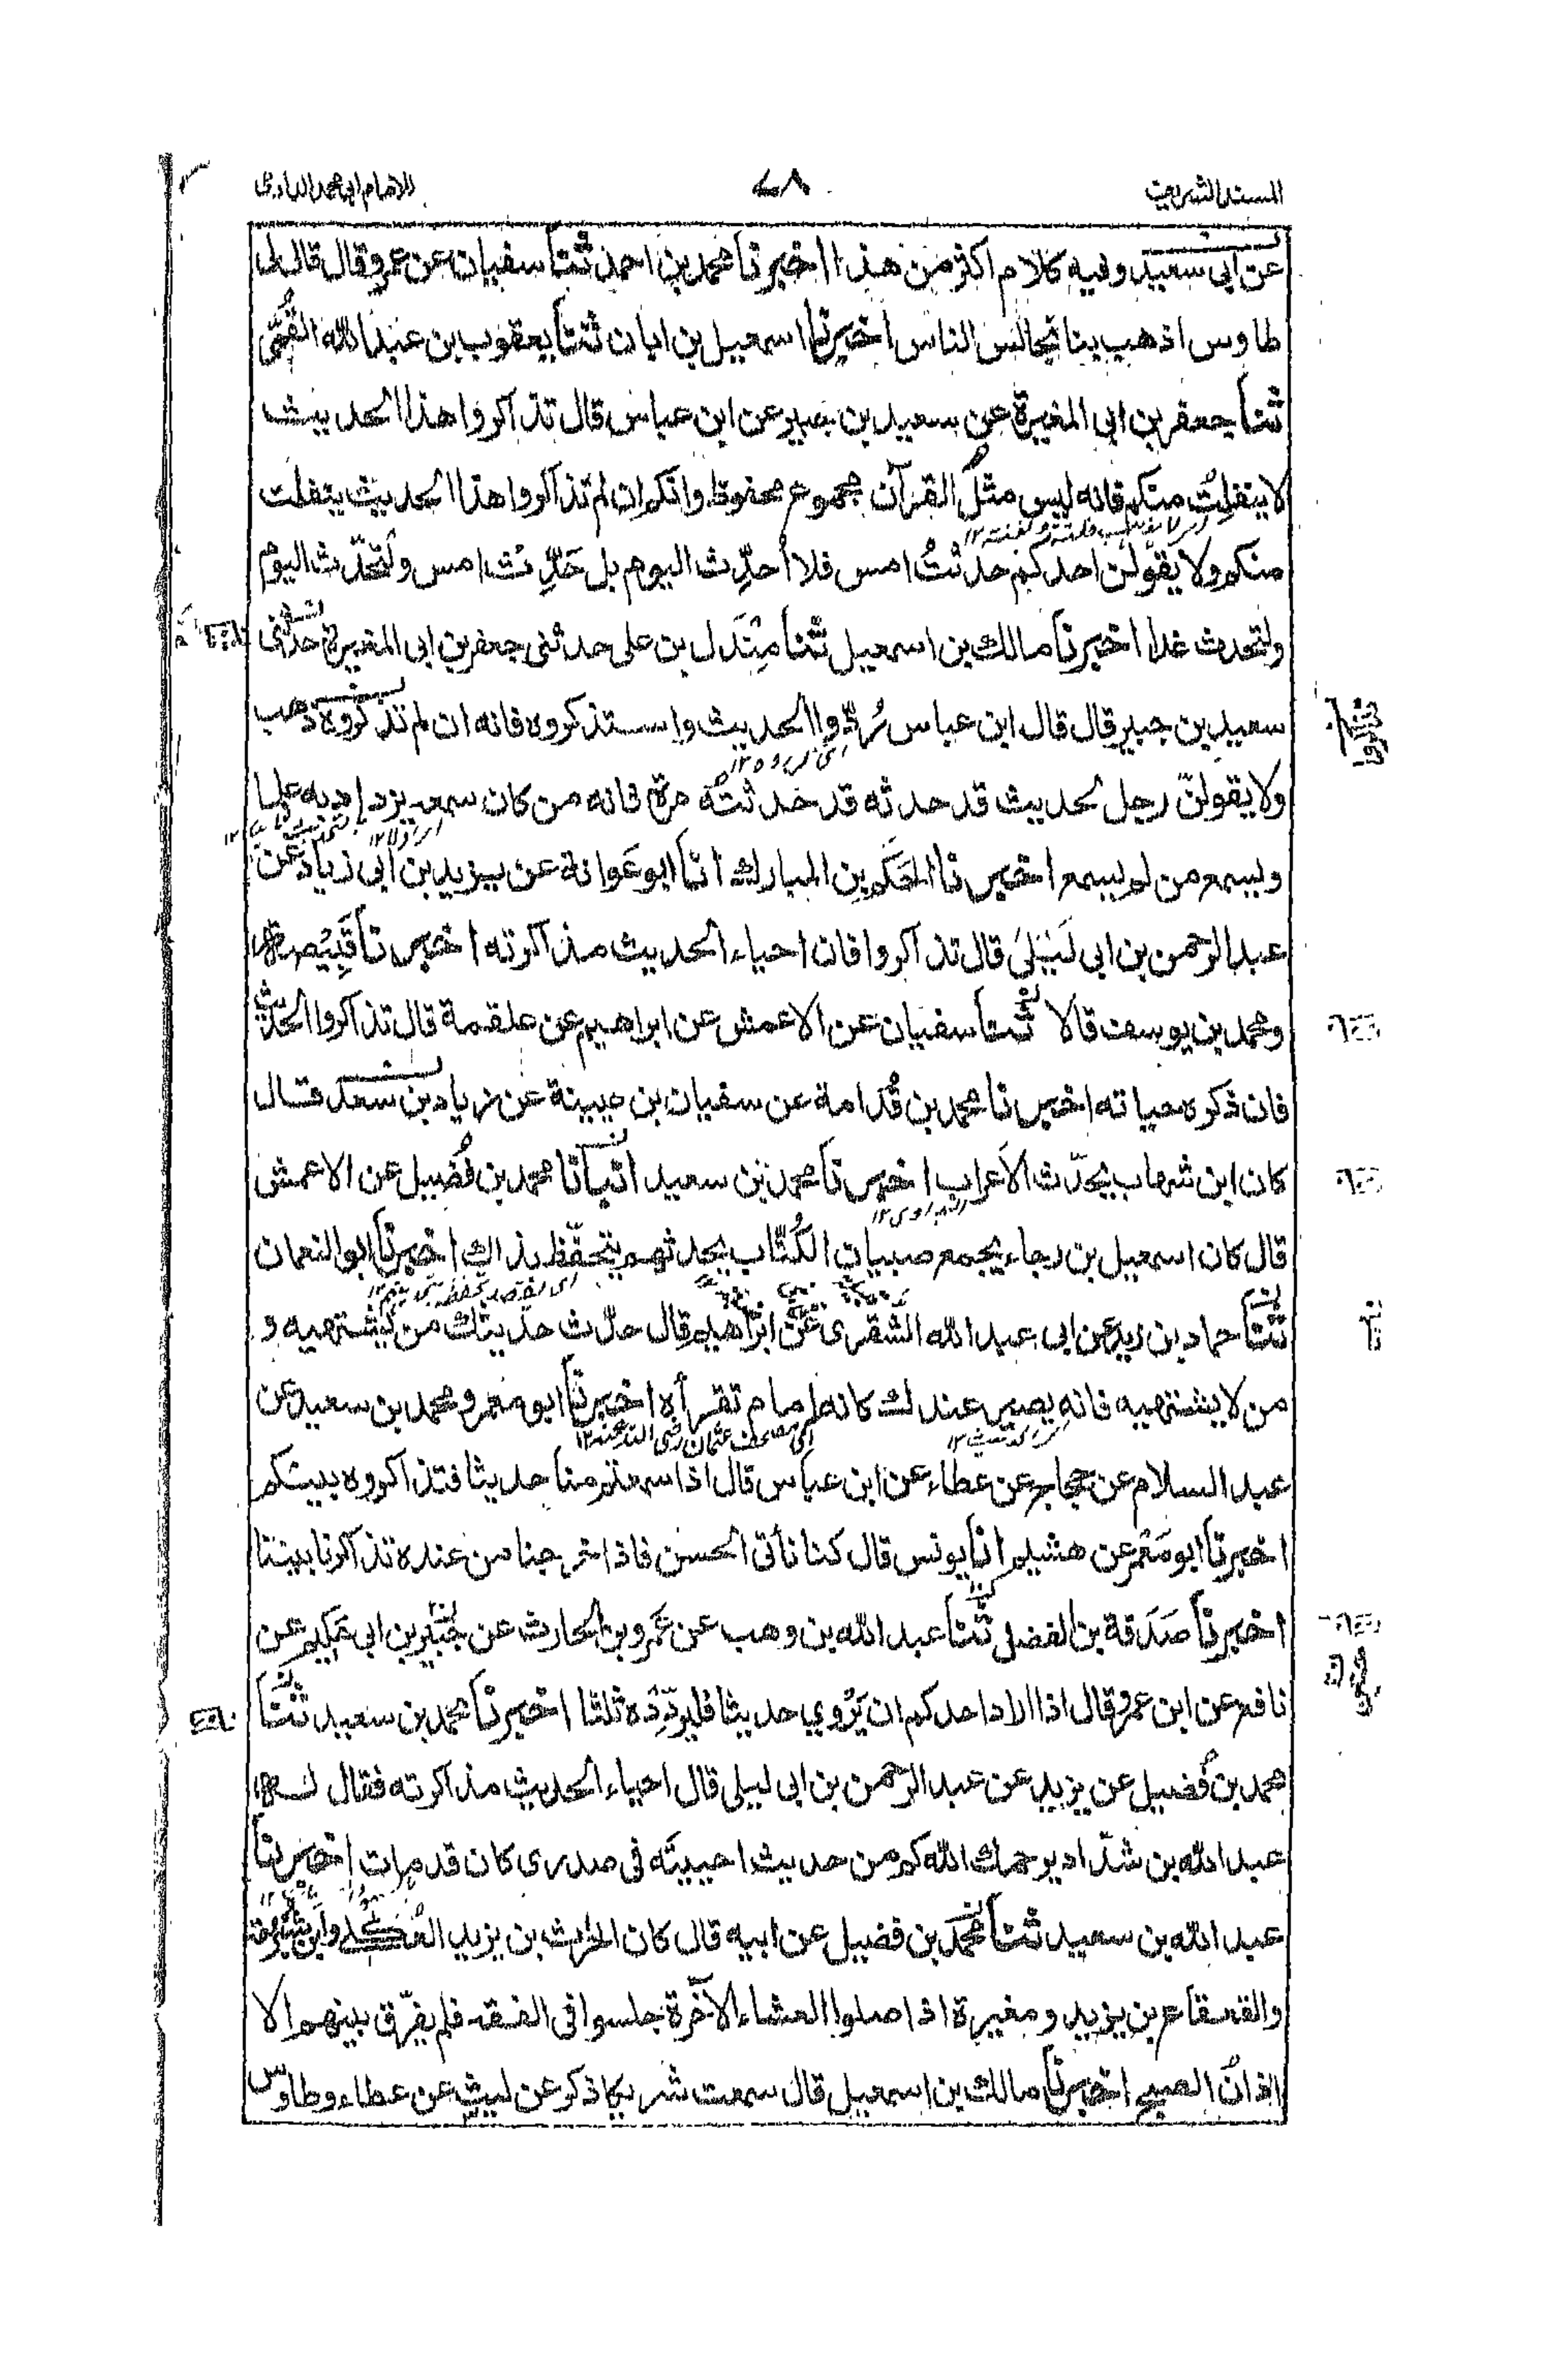 المسند الشريف ٧٨ للامام ابي محمد الدارمي
عن ابى سعيد وفيه كلام اكثر من هذا اخبرنا محمد بن احمد ثنا سفيان عن عمرو قال قال لى
طاوس اذهب بنا نجالس الناس اخبرنا اسمعيل بن ابان ثنا يعقوب بن عبد الله القُمّى
ثنا جعفر بن ابى المغيرة عن سعيد بن جبير عن ابن عباس قال تذاكروا هذا الحديث
لا ينفلت منكم فانه ليس مثل القرآن مجموع محفوظ وانكم ان لم تذاكروا هذا الحديث ينفلت
منكم ولا يقولن احدكم حدثتُ امس فلا أُحدِّث اليوم بل حَدِّث امس ولتُحدّث اليوم
ولتحدث غدا اخبرنا مالك بن اسمعيل ثنا مِنْدَل بن على حدثنى جعفر بن ابى المغيرة حدثنى
سعيد بن جبير قال قال ابن عباس رُدّوا الحديث واستذكروه فانه ان لم تذكروه ذهب
اى كرروه ١٢
ولا يقولنّ رجل لحديث قد حدثه قد حدثته مرة فانه من كان سمعه يزداد به علما
ويسمع من لم يسمع اخبرنا الحَكَم بن المبارك انا ابو عَوانة عن يزيد بن ابى زياد عن
عبد الرحمن بن ابى لَيْلىَ قال تذاكروا فان احياء الحديث مذاكرته اخبرنا قَبِيْصة
ومحمد بن يوسف قالا ثنا سفيان عن الاعمش عن ابراهيم عن علقمة قال تذاكروا الحديث
فان ذكره حياته اخبرنا محمد بن قُدَامة عن سفيان بن عيينة عن زياد بن سعد قال
كان ابن شهاب يُحدّث الأَعراب اخبرنا محمد بن سعيد انبأنا محمد بن فُضيل عن الاعمش
قال كان اسمعيل بن رجاء يجمع صبيان الكُتّاب يحدثهم يتحفّظ بذاك اخبرنا ابو النعمان
ثنا حماد بن زيد عن ابى عبد الله الشَقرى عن ابراهيم قال حدّث حديثك من يشتهيه و
من لا يشتهيه فانه يصير عندك كانه امام تقرأه اخبرنا ابو معمر ومحمد بن سعيد عن
اى مصحف عثمان رضى الله عنه ١٢
عبد السلام عن حجاج عن عطاء عن ابن عباس قال اذا سمعتم منا حديثا فتذاكروه بينكم
اخبرنا ابو مَعْمر عن هشيم انا يونس قال كنا نأتى الحسن فاذا خرجنا من عنده تذاكرنا بيننا
اخبرنا صَدَقة بن الفضل ثنا عبد الله بن وهب عن عمرو بن الحارث عن بن ابى حكيم عن
نافع عن ابن عمر قال اذا اراد احدكم ان يَرْوِي حديثا فليردِّدْه ثلثا اخبرنا محمد بن سعيد ثنا
محمد بن فُضيل عن يزيد عن عبد الرحمن بن ابى ليلى قال احياء الحديث مذاكرته فقال له
عبد الله بن شدّاد يرحمك الله كم من حديث احييتَه فى صدرى كان قد مات اخبرنا
عبد الله بن سعيد ثنا محمد بن فضيل عن ابيه قال كان الحرث بن يزيد العُكْلى وابن شُبْرُمة
والقعقاع بن يزيد ومغيرة اذا صلوا العشاء الآخرة جلسوا فى الفقه فلم يفرّق بينهم الا
اذانُ الصبح اخبرنا مالك بن اسمعيل قال سمعت شريكا ذكر عن ليث عن عطاء وطاوس